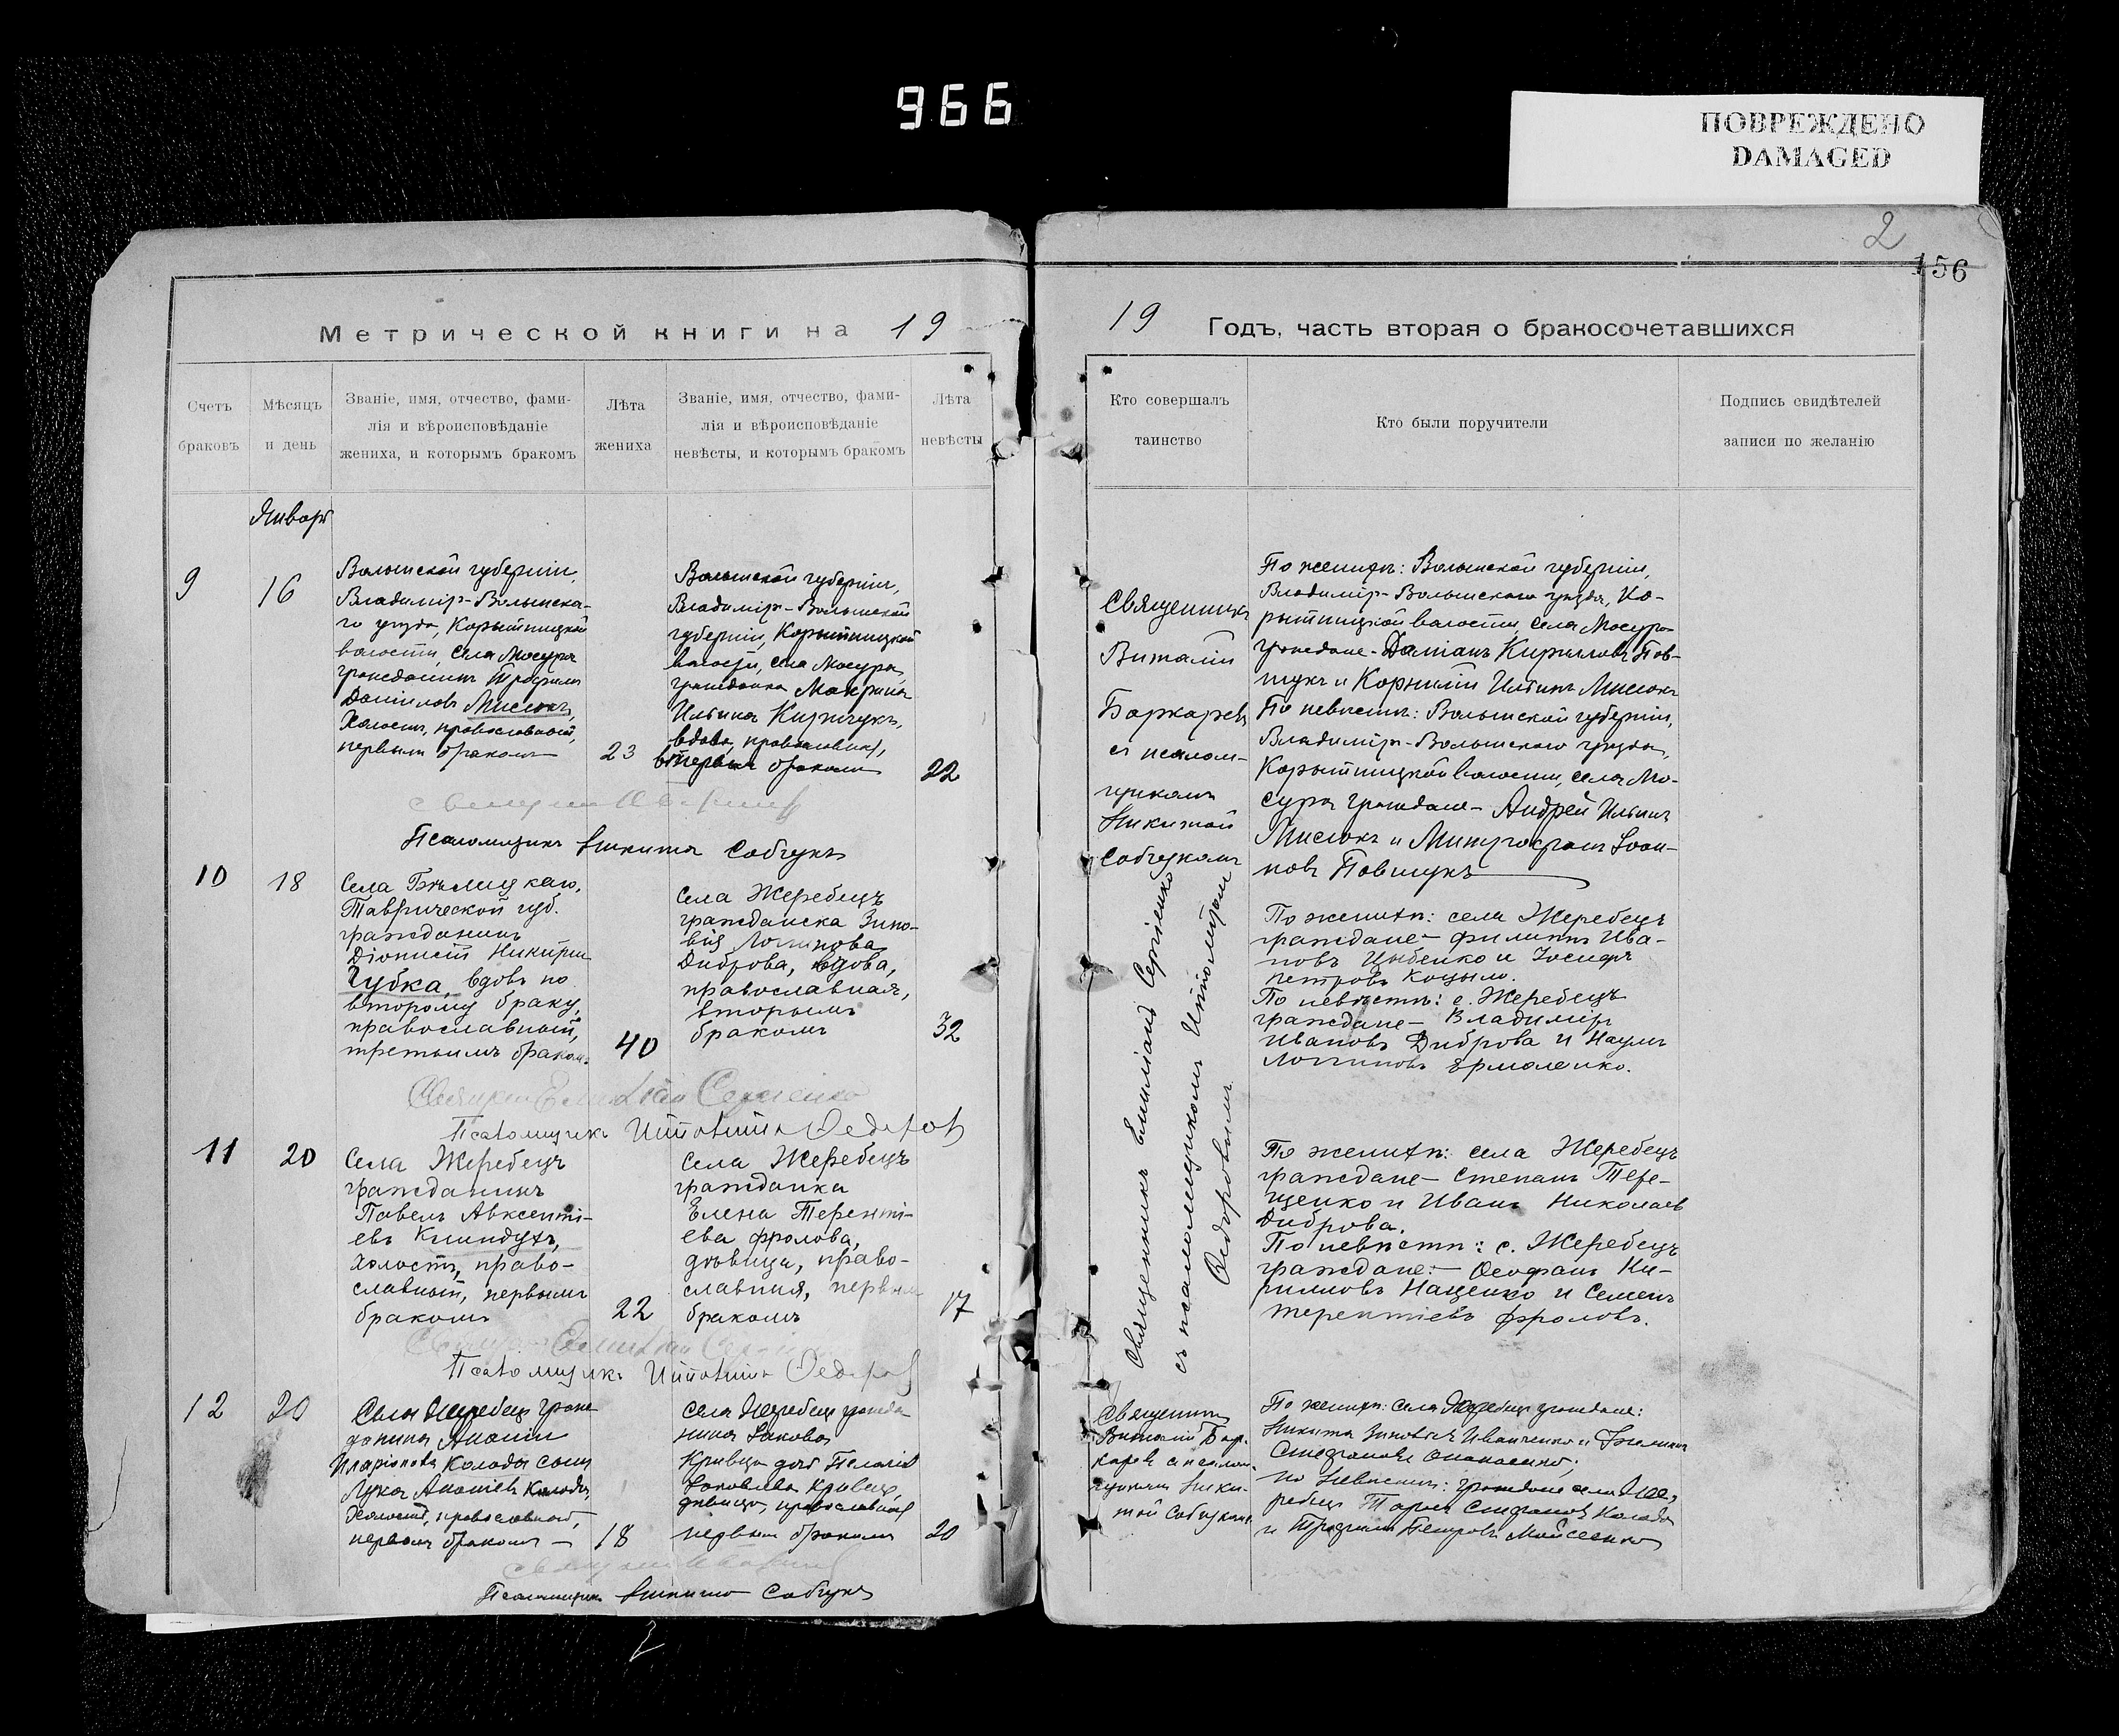 966
ПОВРЕЖДЕНО
DAMAGED
2
156
Метрической книги на 19
19 Годъ, часть вторая о бракосочетавшихся
Счетъ
браковъ
Мѣсяцъ
и день
Званіе, имя, отчество, фами-
лія и вѣроисповѣданіе
жениха, и которымъ бракомъ
Лѣта
жениха
Званіе, имя, отчество, фами-
лія и вѣроисповѣданіе
невѣсты, и которымъ бракомъ
Лѣта
невѣсты
Кто совершалъ
таинство
Кто были поручители
Подпись свидѣтелей
записи по желанію
Январь
9
16
Волынской губерніи,
Владимір-Волынска-
го уѣзда, Корытницкой
волости, села Мосура
гражданинъ Трофимъ
Даниловъ Мисюкъ,
Холостъ, православный,
первымъ бракомъ
23
Волынской губерніи,
Владимір-Волынской
губерніи, Корытницкой
волости, села Мосура,
гражданка Макрина
Ильина Киричукъ,
вдова, православная,
бракомъ
22
Псаломщикъ Никита Собчукъ
Священникъ
Виталій
Баркаревъ
съ псалом-
щикомъ
Никитой
Собчукомъ
По женихѣ: Волынской губерніи,
Владимір-Волынскаго уѣзда, Ко-
рытницкой волости, села Мосура
граждане - Даміанъ Кирилловъ Пов-
шукъ и Корнилій Ильинъ Мисюкъ
По невѣстѣ: Волынской губерніи,
Владимір-Волынскаго уѣзда,
Корытницкой волости, села Мо-
сура граждане - Андрей Ильинъ
Мисюкъ и Митрофанъ Іоан-
новъ Повшукъ
10
18
Села
Таврической губ.
гражданинъ
Діонисій
Чубка, вдовъ по
второму браку,
православный,
третьимъ бракомъ
40
Села Жеребецъ
гражданска Зино-
вія Логгинова
Диброва, вдова,
православная,
вторымъ
бракомъ
32
Священникъ Емиліанъ Сергіенко
съ псаломщикомъ Ипполитомъ
Ѳедоровымъ
По женихѣ: села Жеребецъ
граждане - Филиппъ Ива-
новъ Цыбенко и Іосифъ
Петровъ Коцыло.
По невѣстѣ: с. Жеребецъ
граждане - Владиміръ
Ивановъ Диброва и Наумъ
Логгиновъ Ермоленко.
Псаломщикъ Ипполитъ Ѳедоровъ
11
20
Села Жеребецъ
гражданинъ
Павелъ Авксенті-
евъ Книндухъ,
холостъ, право-
славный, первымъ
бракомъ
22
Села Жеребецъ
гражданка
Елена Теренті-
ева Фролова,
дѣвица, право-
славная, первым
бракомъ
17
По женихѣ: села Жеребецъ
граждане - Степанъ Тере-
щенко и Иванъ Николаевъ
Диброва.
По невѣстѣ: с. Жеребецъ
граждане: - Ѳеофанъ Ки-
рилловъ Нащенко и Семенъ
Терентіевъ Фроловъ.
Псаломщикъ Ипполитъ Ѳедоровъ
12
20
Села Жеребецъ граж-
данина Ананіи
Иларіонова Колоды сынъ
Лука Ананіевъ Колода,
Холостъ, православный,
первымъ бракомъ —
18
Села Жеребецъ гражда-
нина Іакова
Кривца дочь Пелагія
Іаковлева Кривец,
дѣвица, православная
первымъ бракомъ
20
Священникъ
Виталій Бар-
каревъ с псалом-
щикомъ Ники-
той Собчукомъ
По женихѣ: села Жеребецъ граждане:
Никита Зиновіевъ Иванченко и
Стефановъ
по невѣстѣ: граждане села Же-
ребецъ Тарасъ Стефановъ Колода
и Трофимъ Петровъ Мойсеенко
Псаломщикъ Никита Собчукъ
2